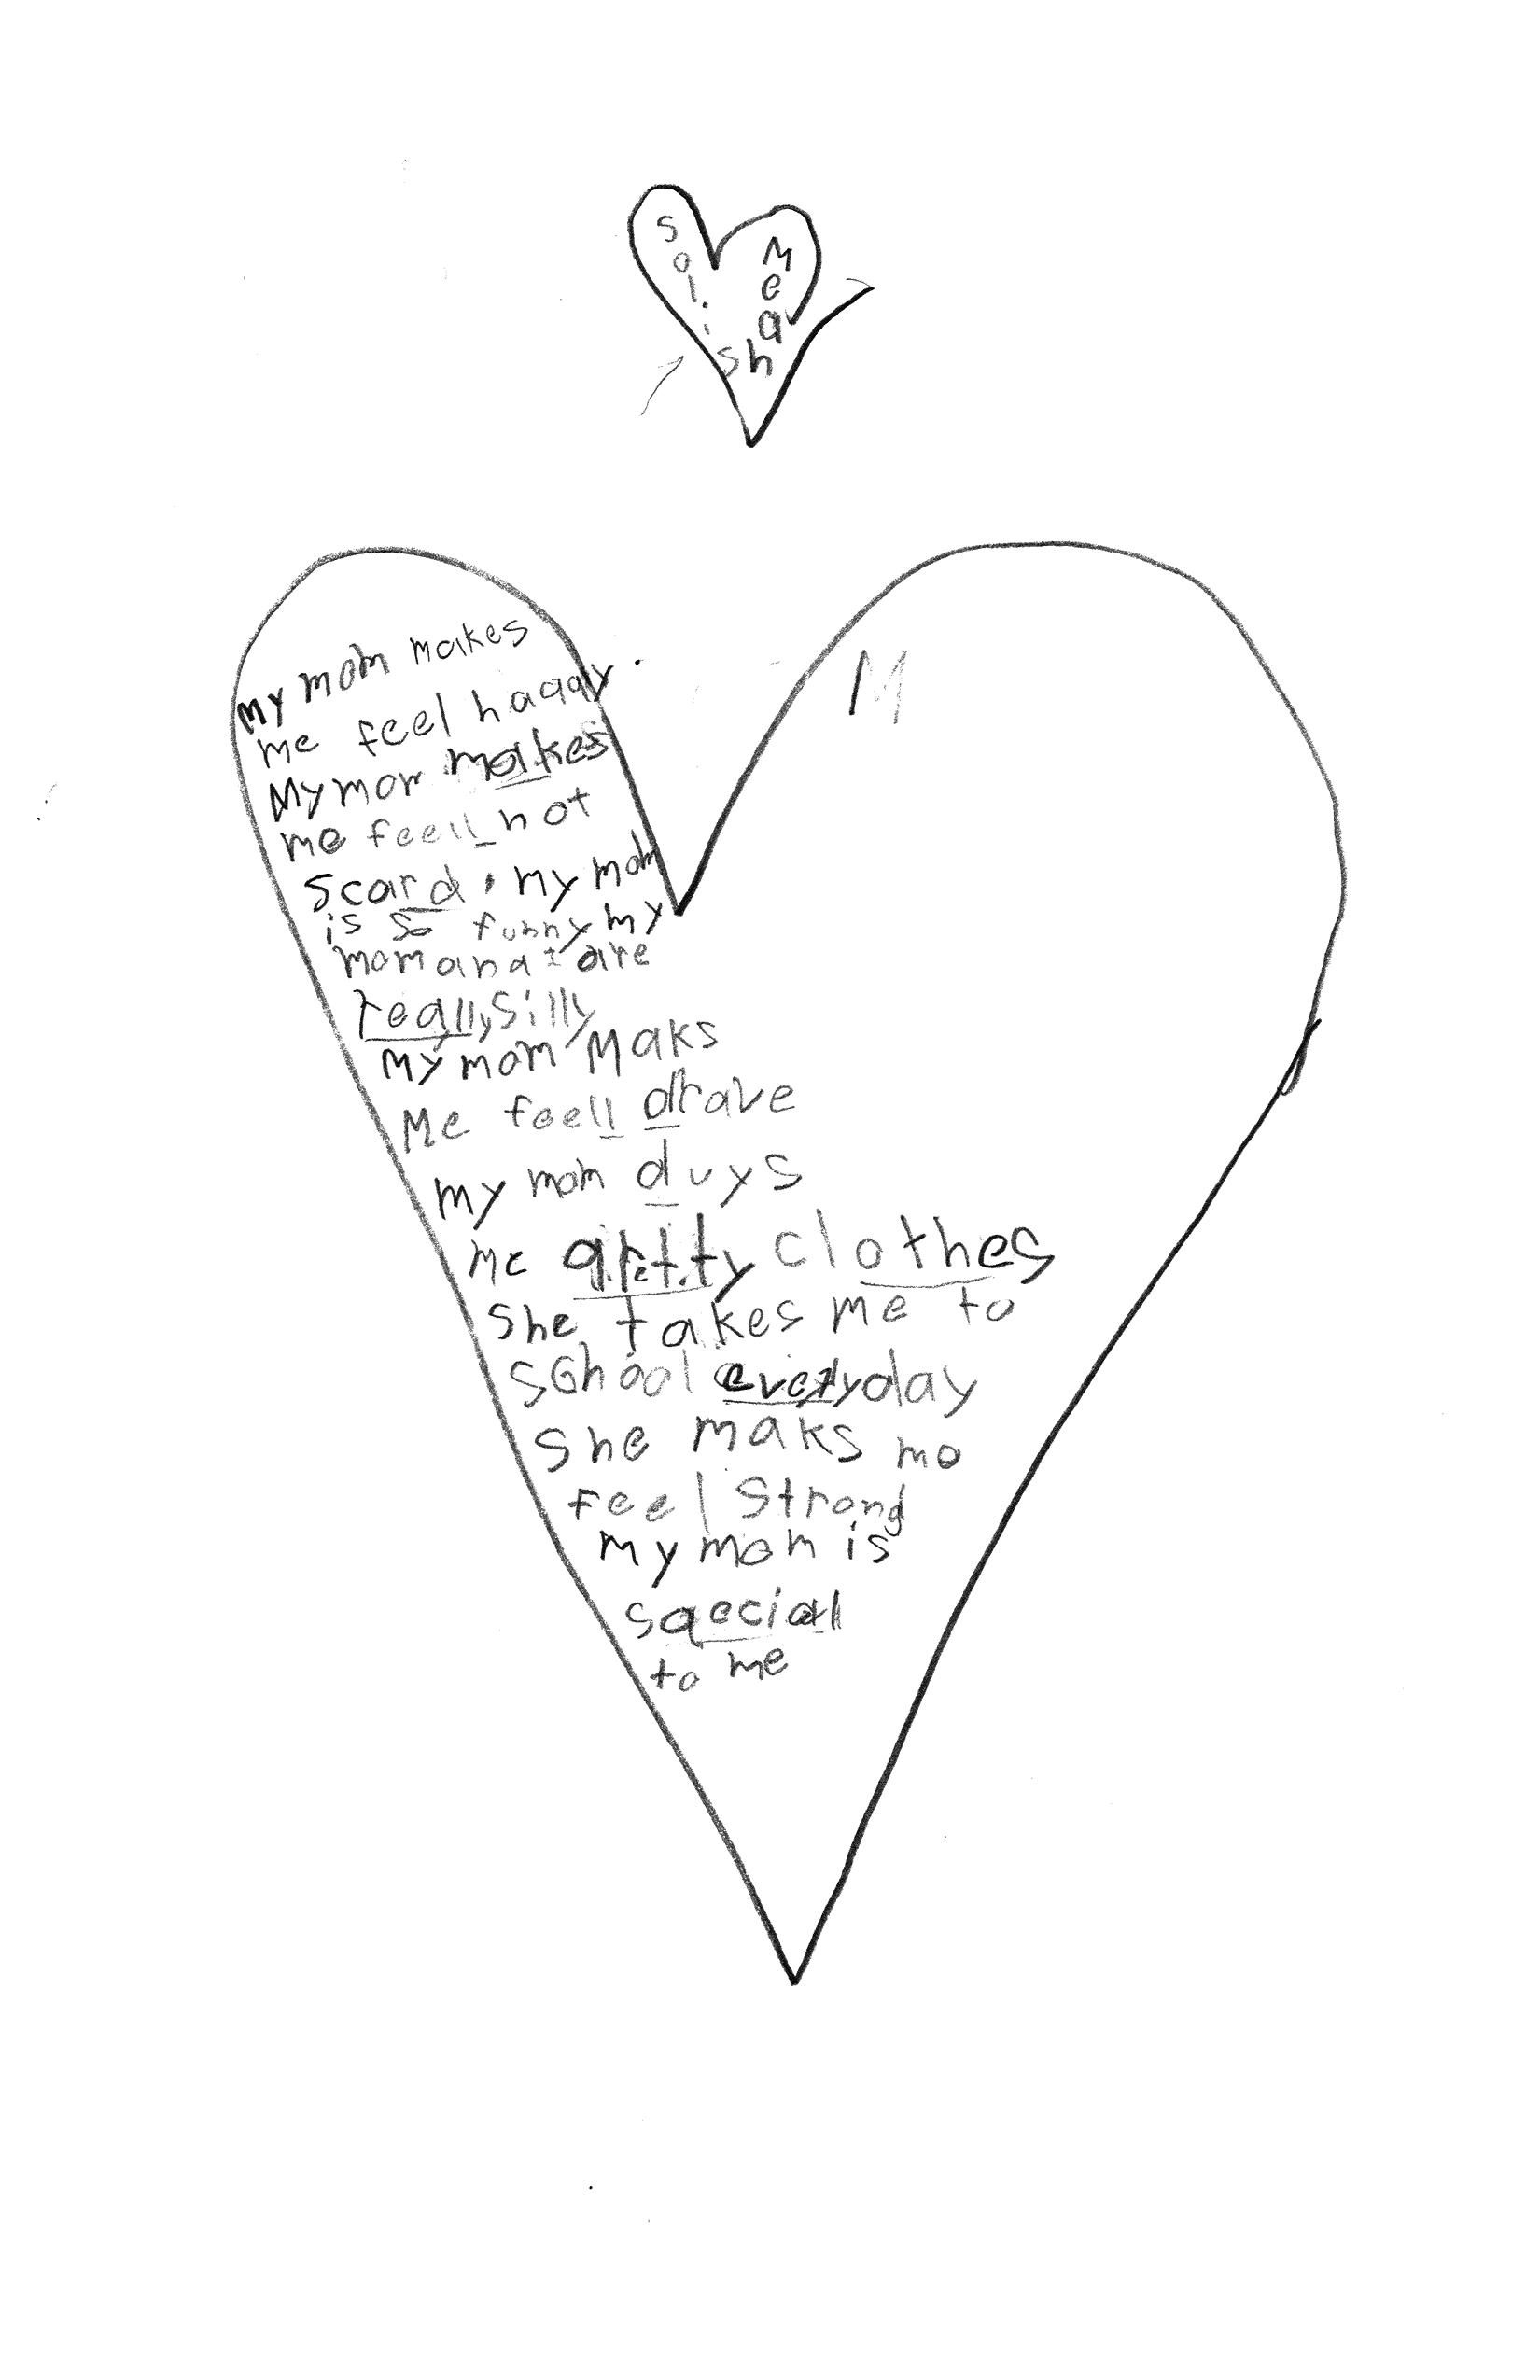 S M
o e
l a
i
sh
My mom makes
me feel haqqy.
My mom makes
me feell not
scard. my mom
is so funny my
mom and I are
really silly
My mom Maks
Me feell drave
my mom duys
me qretty clothes
she takes me to
school everyday
She maks me
feel Strong
my mom is
sqecial
to me
M